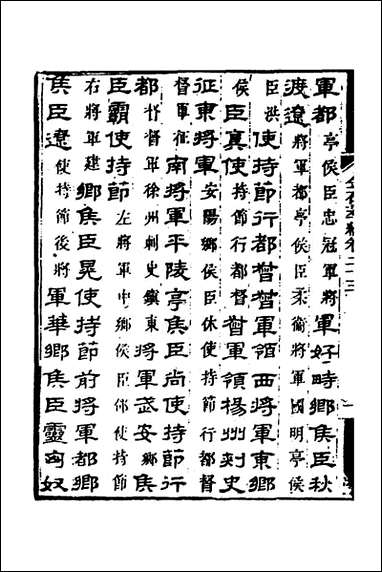 軍都亭侯臣忠冠軍將軍好畤鄉侯臣秋
渡遼將軍都亭侯臣柔衛將軍國明亭侯
臣洪使持節行都督督軍領西將軍東鄉
侯臣真使持節行都督督軍領楊州刺史
征東將軍安陽鄉侯臣休使持節行都督
督軍征南將軍平陵亭侯臣尚使持節行
都督督軍徐州刺史鎮東將軍武安鄉侯
臣霸使持節左將軍中鄉侯臣郃使持節
右將軍建鄉侯臣晃使持節前將軍都鄉
侯臣遼使持節後將軍華鄉侯臣靈匈奴
金石萃編卷二十三